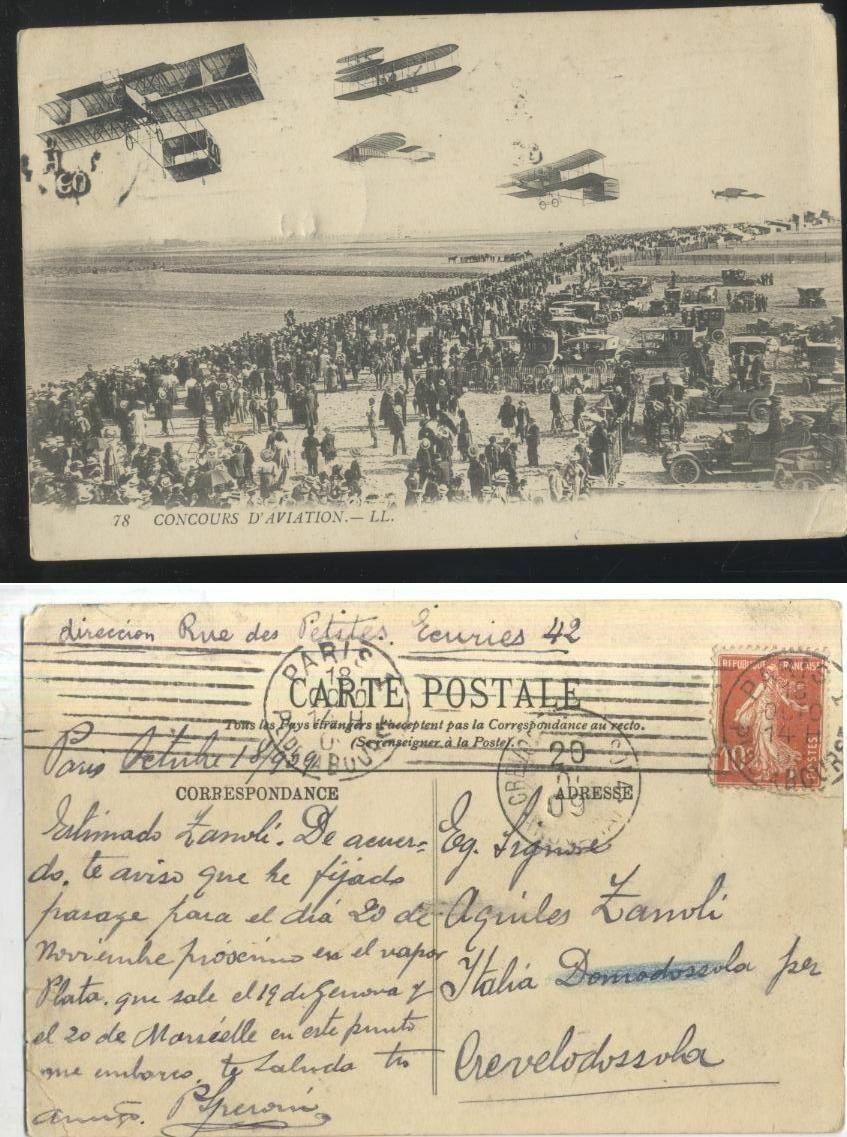 78 CONCOURS D'AVIATION.— LL.
direccion Rue des Petites Ecuries 42
PARIS
18
CARTE POSTALE
Tous les Pays étrangers n'acceptent pas la Correspondance au recto.
(Se renseigner à la Poste).
REPUBLIQUE FRANÇAISE
10c
POSTES
Paris Octubre 18/909
20
09
CORRESPONDANCE
ADRESSE
Estimado Zanoli. De acuer-
do, te aviso que he fijado
pasage para el diá 20 de
Noviembre próximo en el vapor
Plata, que sale el 19 de Genova y
el 20 de Marsélle en este punto
me embarco. te Saluda tu
amigo.
Eg. Signore
Aquiles Zanoli
Italia Domodossola per
Crevelodossola